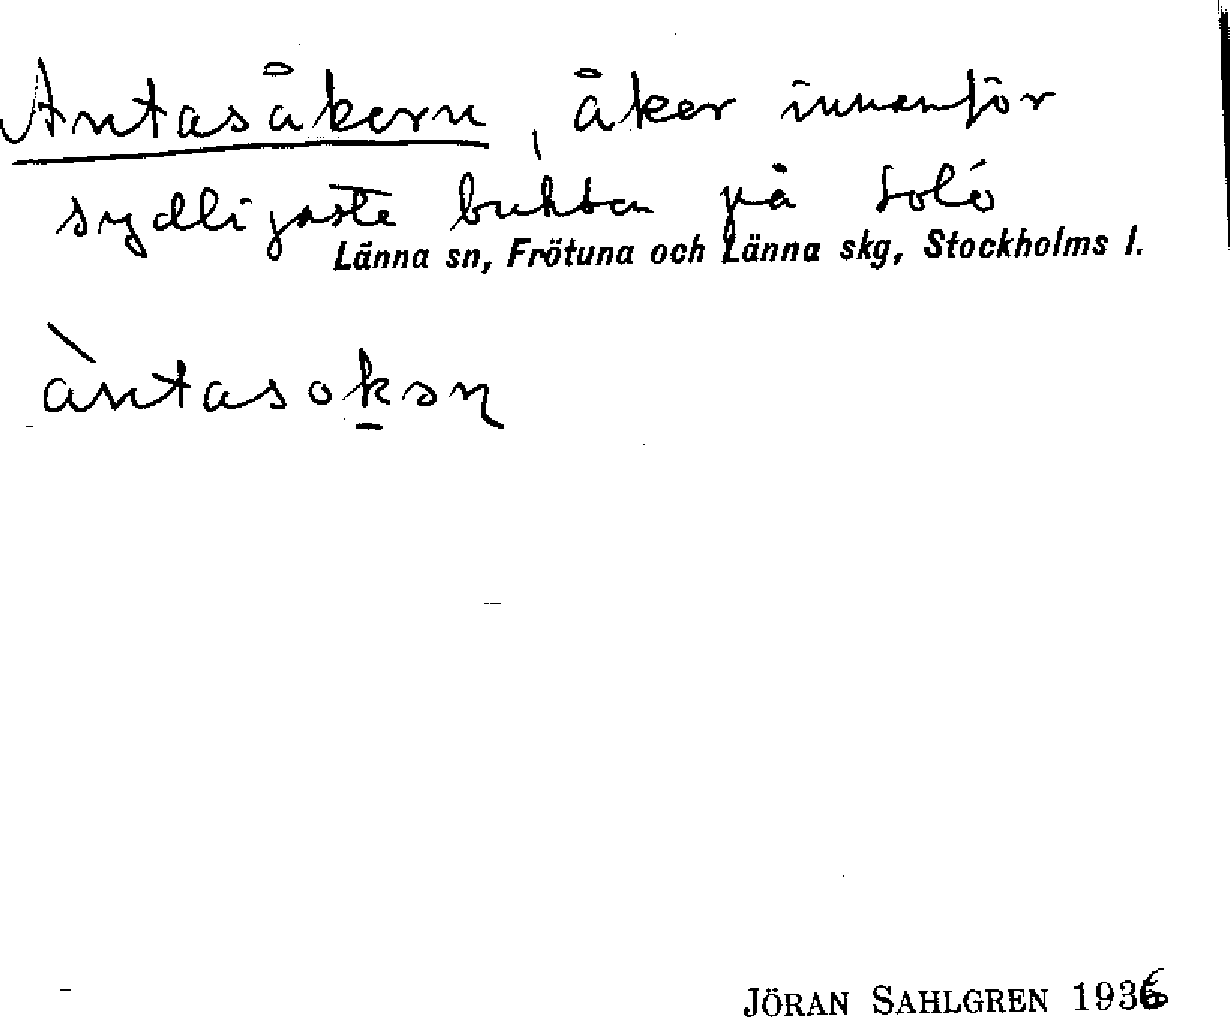 Antasåkern, åker innanför
sydligaste bukten på Solö
Länna sn, Frötuna och Länna skg, Stockholms l.
àntasokən
JÖRAN SAHLGREN 1936